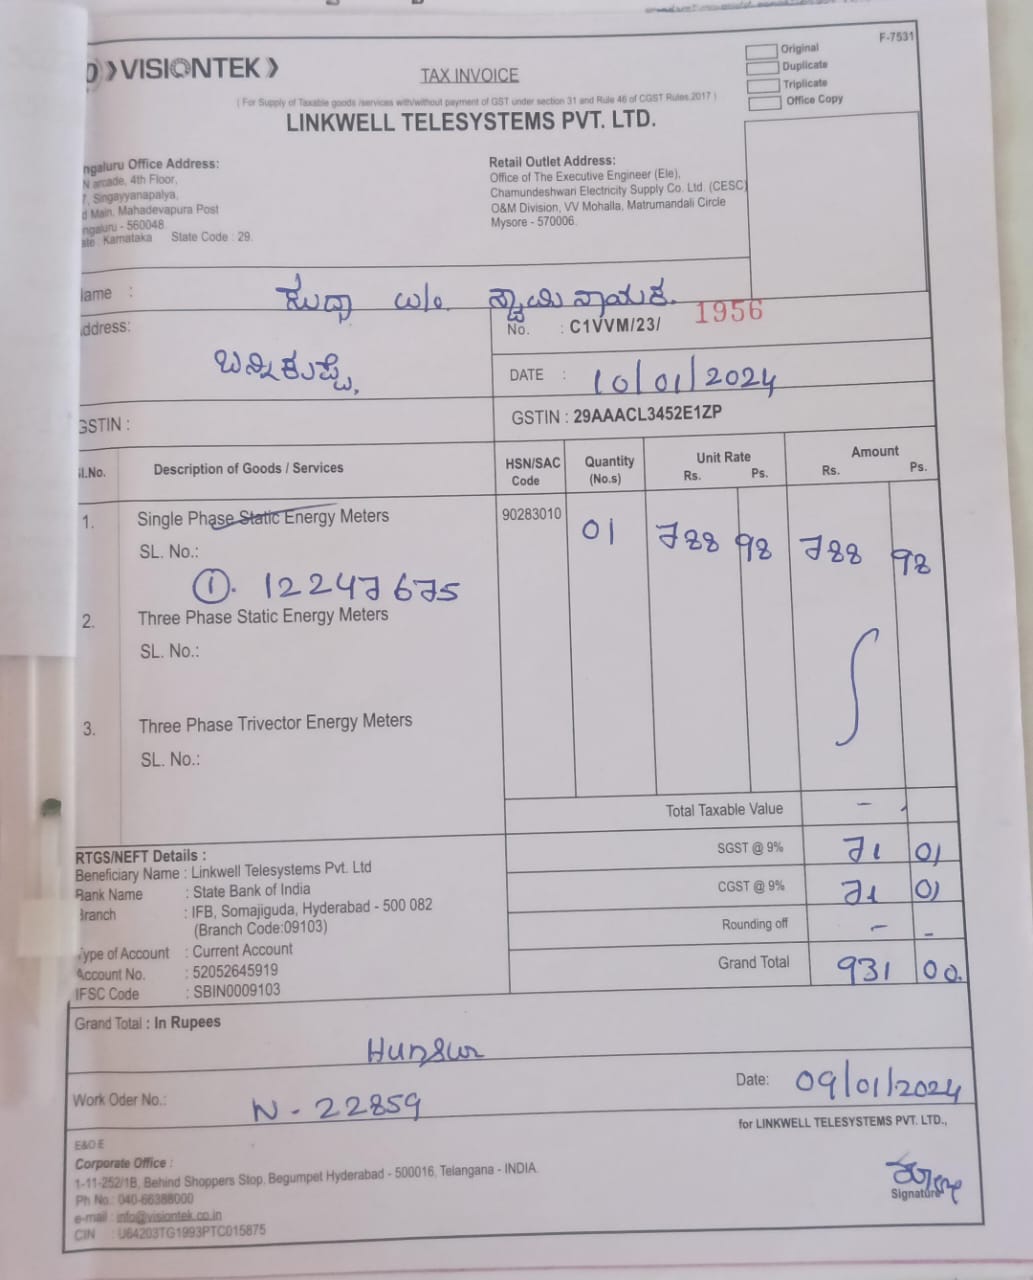 F-7531
VISIONTEK
TAX INVOICE
Original
Duplicate
Triplicate
Office Copy
( For Supply of Taxable goods /services with/without payment of GST under section 31 and Rule 46 of CGST Rules.2017 )
LINKWELL TELESYSTEMS PVT. LTD.
ngaluru Office Address:
N arcade, 4th Floor,
7, Singayyanapalya,
d Main, Mahadevapura Post
ngaluru - 560048
ate : Karnataka State Code : 29.
Retail Outlet Address:
Office of The Executive Engineer (Ele),
Chamundeshwari Electricity Supply Co. Ltd. (CESC)
O&M Division, VV Mohalla, Matrumandali Circle
Mysore - 570006.
ame :
ddress:
ಬನ್ನಿಕುಪ್ಪೆ,
No. : C1VVM/23/ 1956
DATE : 10/01/2024
GSTIN :
GSTIN : 29AAACL3452E1ZP
l.No. Description of Goods / Services HSN/SAC Code Quantity (No.s) Unit Rate Rs. Ps. Amount Rs. Ps.
1. Single Phase Static Energy Meters 90283010 01 788 98 788 98
SL. No.:
①. 12247675
2. Three Phase Static Energy Meters
SL. No.:
3. Three Phase Trivector Energy Meters
SL. No.:
Total Taxable Value -
SGST @ 9% 71 01
CGST @ 9% 71 01
Rounding off - -
Grand Total 931 00.
RTGS/NEFT Details :
Beneficiary Name : Linkwell Telesystems Pvt. Ltd
Bank Name : State Bank of India
Branch : IFB, Somajiguda, Hyderabad - 500 082
(Branch Code:09103)
Type of Account : Current Account
Account No. : 52052645919
IFSC Code : SBIN0009103
Grand Total : In Rupees
Hunsur
Work Oder No.: N - 22859
Date: 09/01/2024
for LINKWELL TELESYSTEMS PVT. LTD.,
E&O E
Corporate Office :
1-11-252/1B, Behind Shoppers Stop, Begumpet Hyderabad - 500016, Telangana - INDIA.
Ph No.: 040-66388000
e-mail : info@visiontek.co.in
CIN : U64203TG1993PTC015875
Signature